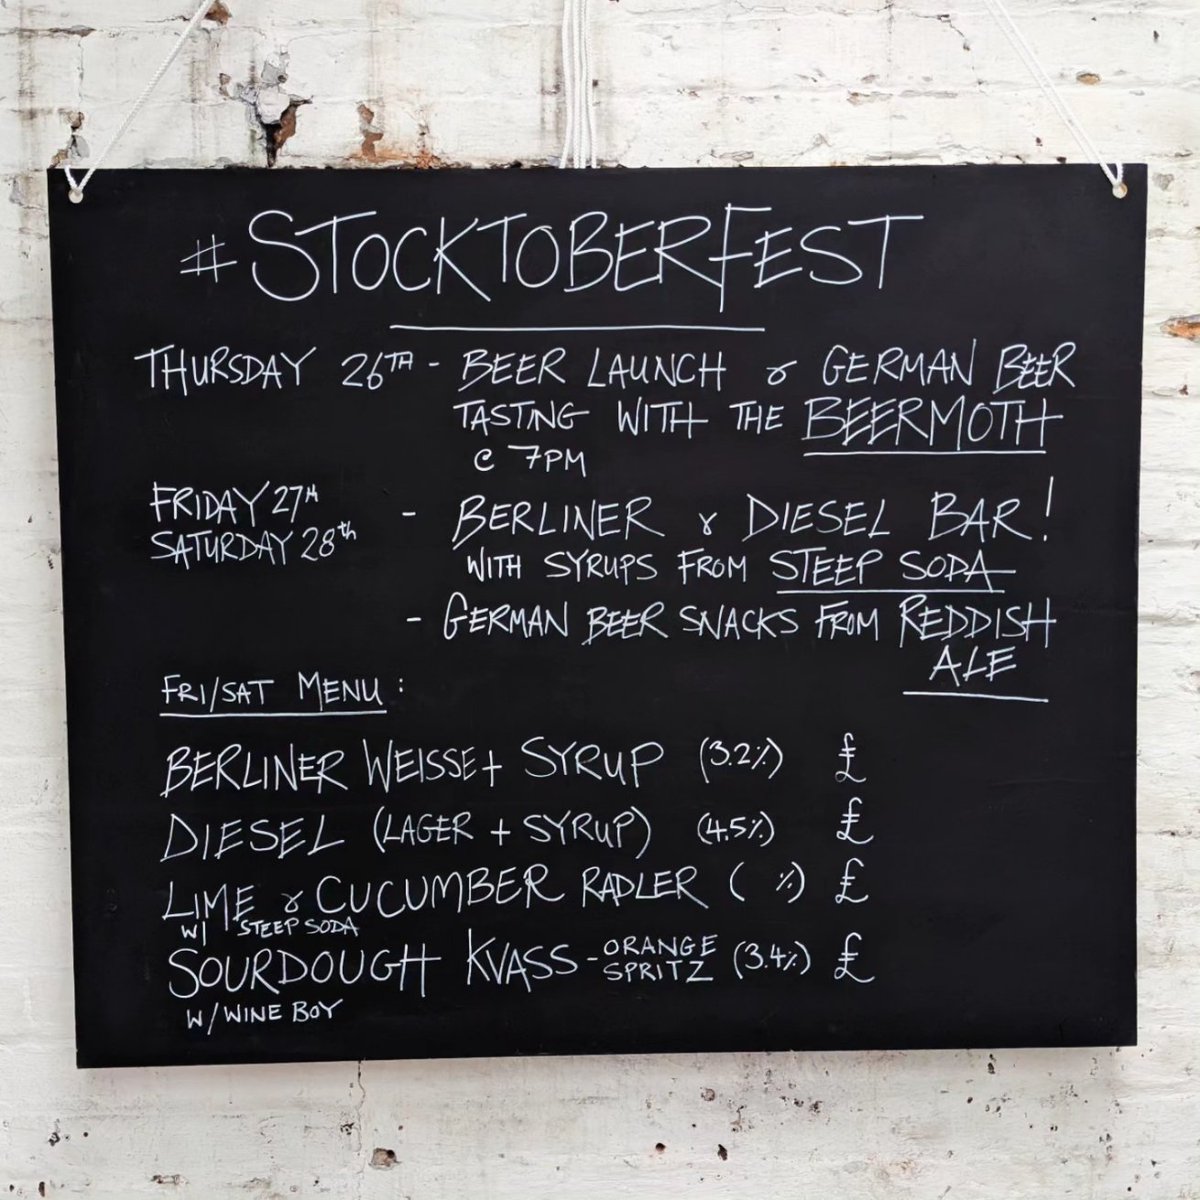 #STOCKTOBERFEST
THURSDAY 26TH - BEER LAUNCH & GERMAN BEER
TASTING WITH THE BEERMOTH
@ 7PM
FRIDAY 27th
SATURDAY 28th
- BERLINER & DIESEL BAR!
WITH SYRUPS FROM STEEP SODA
- GERMAN BEER SNACKS FROM REDDISH
ALE
FRI/SAT MENU:
BERLINER WEISSE + SYRUP (3.2%) £
DIESEL (LAGER + SYRUP) (4.5%) £
LIME & CUCUMBER RADLER ( %) £
W/ STEEP SODA
SOURDOUGH KVASS - ORANGE SPRITZ (3.4%) £
W/ WINE BOY